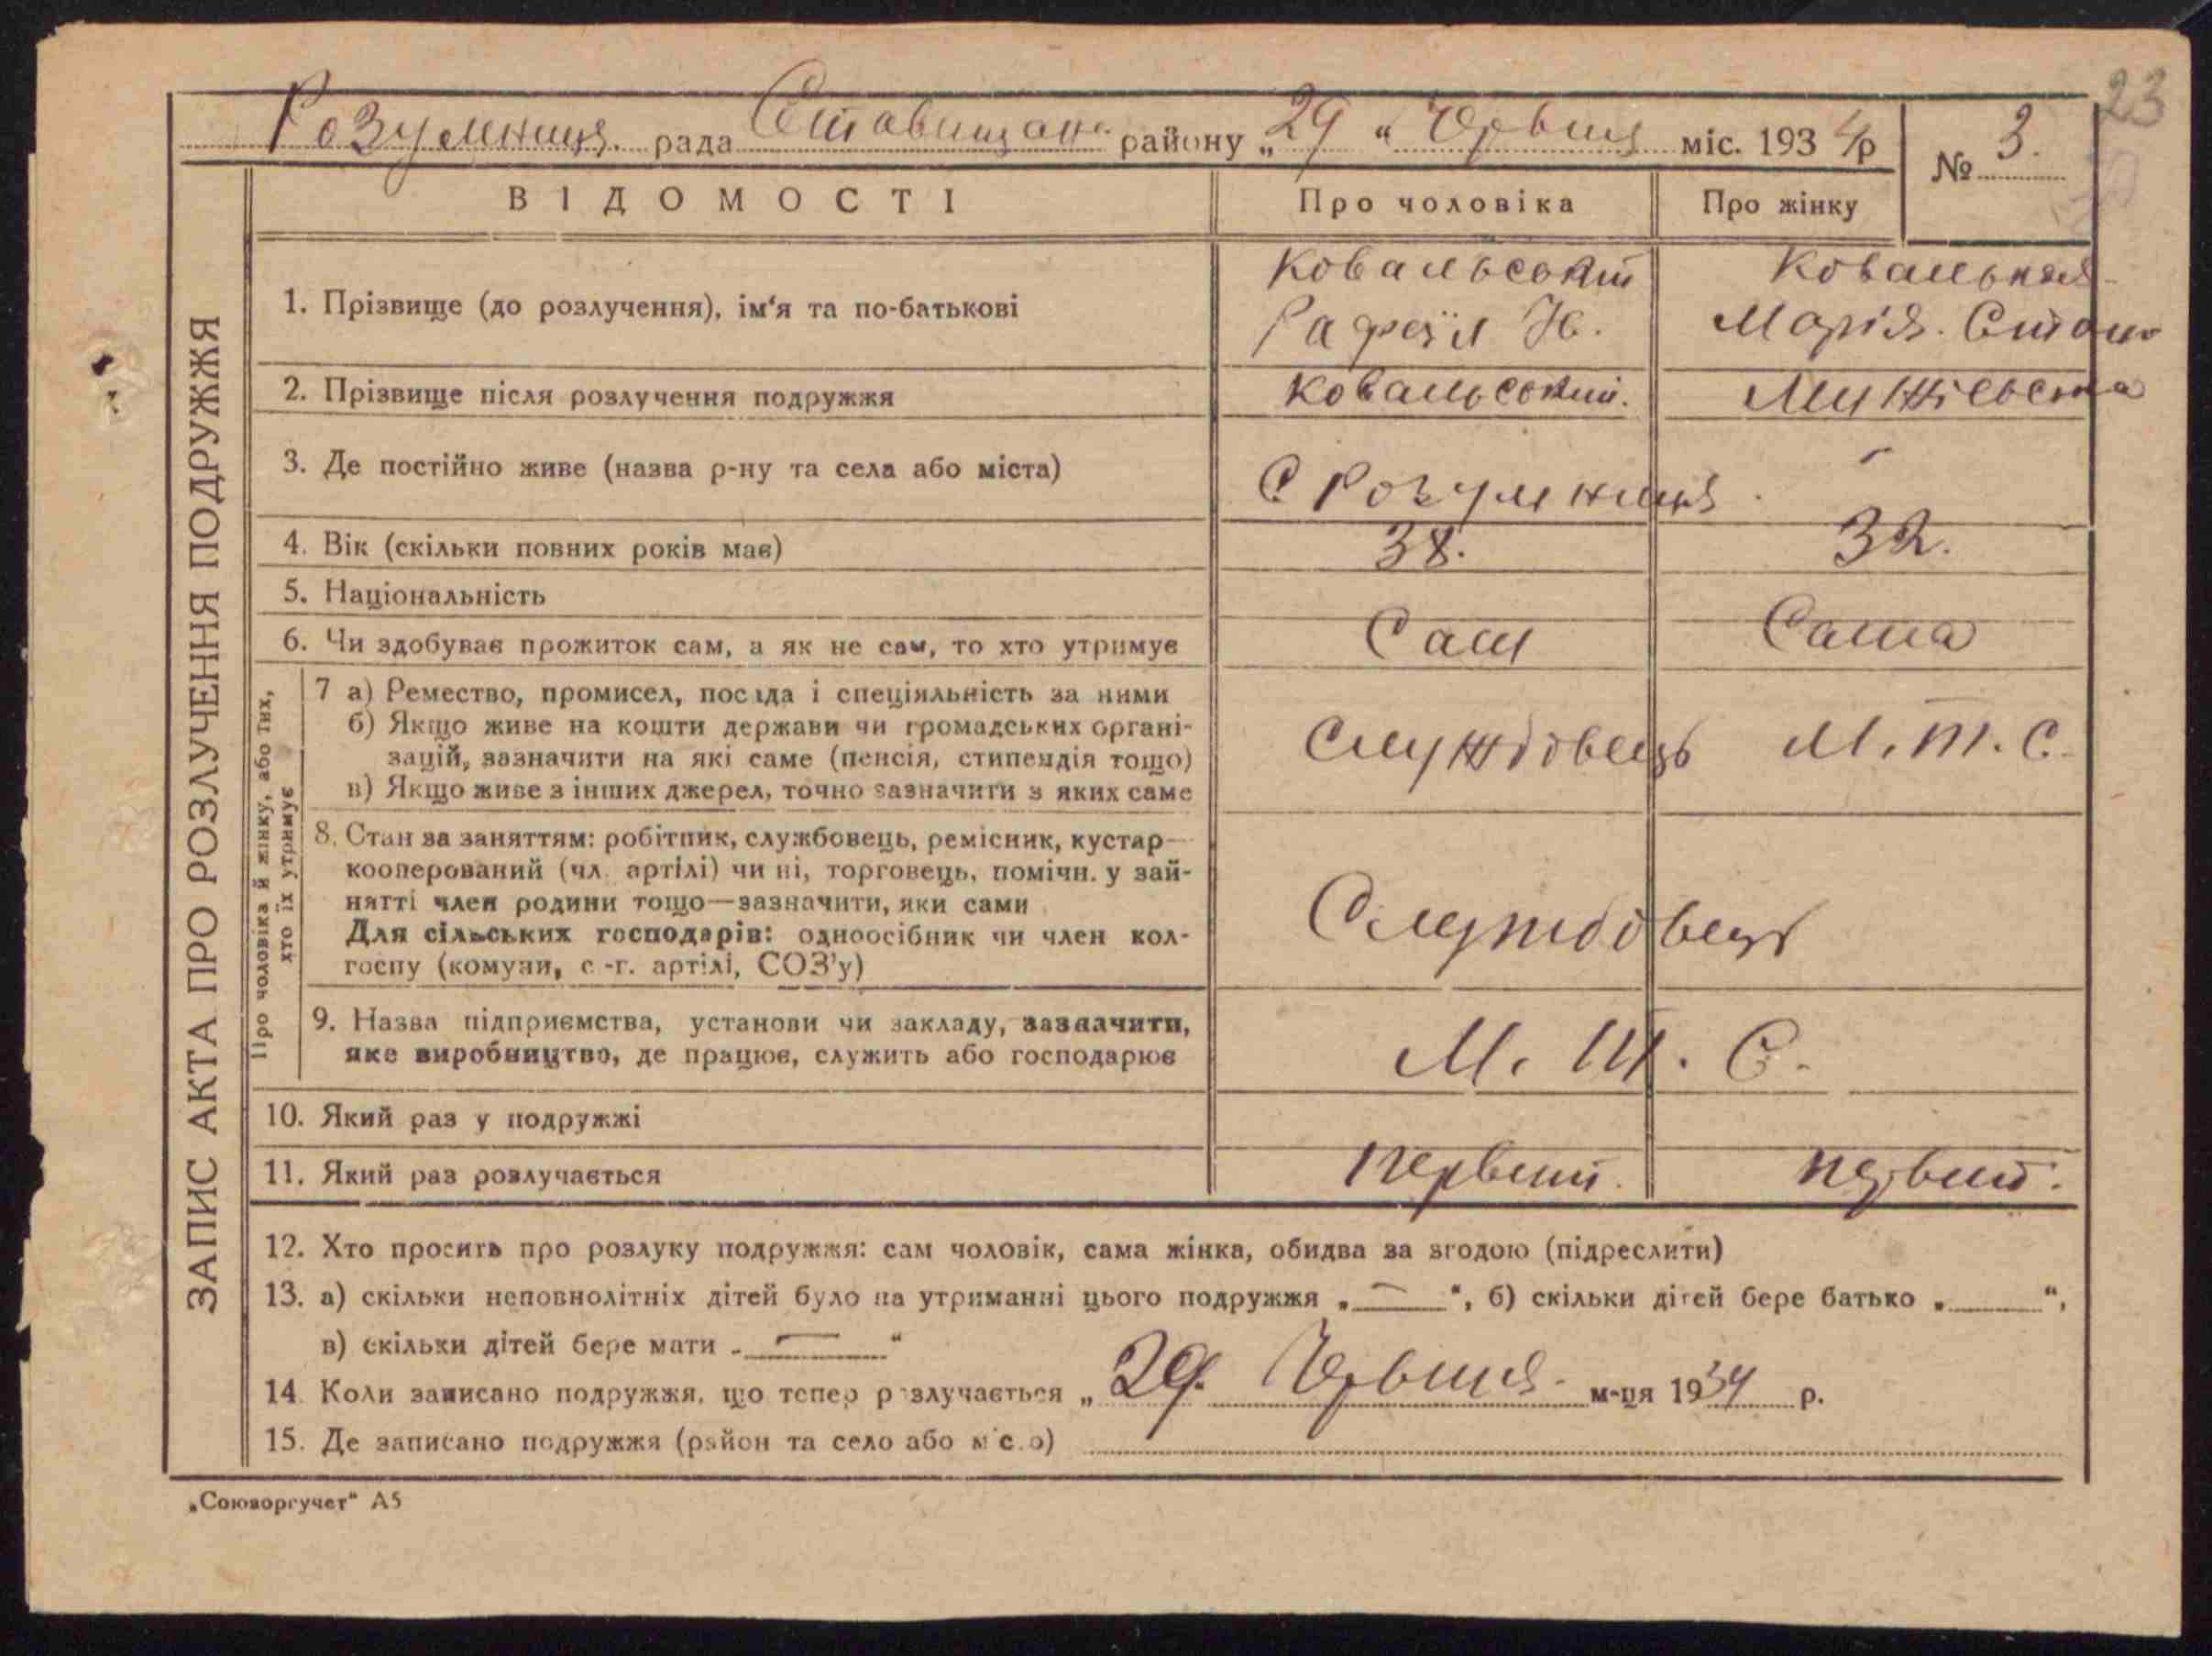 23
Розумниця рада Ставищан. району „29“ Червця міс. 1934р № 3.
ЗАПИС АКТА ПРО РОЗЛУЧЕННЯ ПОДРУЖЖЯ
ВІДОМОСТІ Про чоловіка Про жінку
1. Прізвище (до розлучення), ім‘я та по-батькові
Ковальський
Рафаїл Й.
Ковальская
Марія. Стан
2. Прізвище після розлучення подружжя Ковальський.
3. Де постійно живе (назва р-ну та села або міста) С Розумниця -
4. Вік (скільки повних років має) 38. 32.
5. Національність
6. Чи здобуває прожиток сам, а як не сам, то хто утримує Сам Сама
Про чоловіка й жінку, або тих,
хто їх утримує
7 а) Ремество, промисел, посада і спеціяльність за ними
б) Якщо живе на кошти держави чи громадських органі-
зацій, зазначити на які саме (пенсія, стипендія тощо)
в) Якщо живе з інших джерел, точно зазначити з яких саме
Службовець М.Т.С.
8. Стан за заняттям: робітник, службовець, ремісник, кустар—
кооперований (чл. артілі) чи ні, торговець, помічн. у зай-
нятті член родини тощо—зазначити, яки сами
Для сільських господарів: одноосібник чи член кол-
госпу (комуни, с.-г. артілі, СОЗ'у)
Службовець
9. Назва підприємства, установи чи закладу, зазначити,
яке виробництво, де працює, служить або господарює
М. Т. С.
10. Який раз у подружжі
11. Який раз розлучається первий. первий.
12. Хто просить про розлуку подружжя: сам чоловік, сама жінка, обидва за згодою (підреслити)
13. а) скільки неповнолітніх дітей було на утриманні цього подружжя „—“, б) скільки дітей бере батько „ “,
в) скільки дітей бере мати „—“
14. Коли записано подружжя, що тепер розлучається „29. Червця м-ця 1934 р.
15. Де записано подружжя (район та село або місто)
„Союзоргучет“ А5